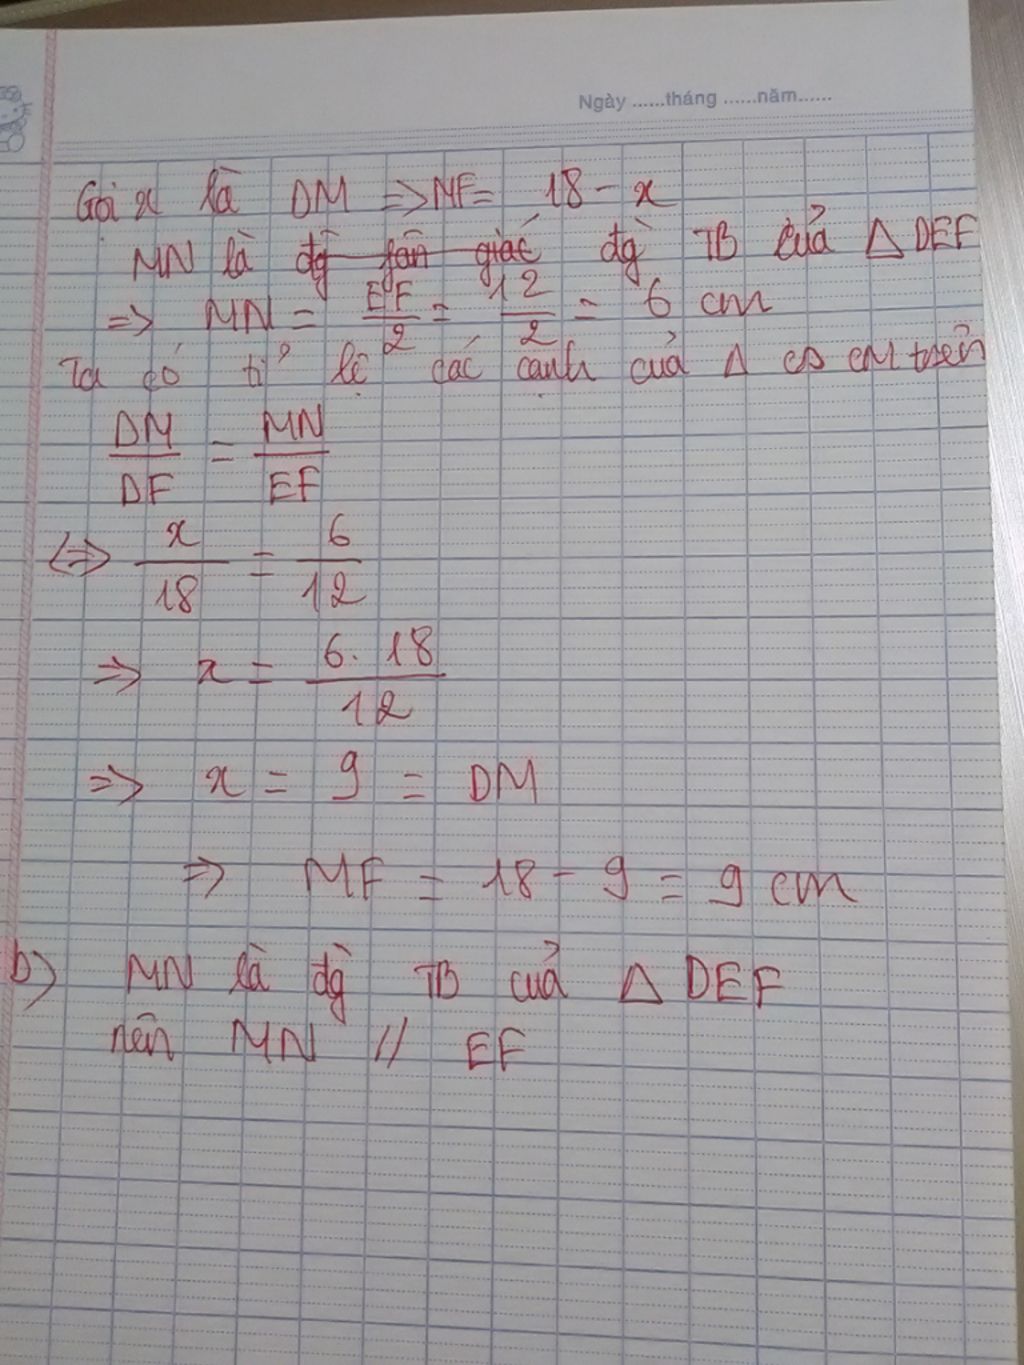 Ngày ......tháng ......năm......
Gọi x là DM => MF = 18 - x
MN là đg fân giác đg TB của Δ DEF
=> MN = EF/2 = 12/2 = 6 cm
Ta có tỉ lệ các cạnh của Δ có
DM/DF = MN/EF
<=> x/18 = 6/12
=> x = 6.18/12
=> x = 9 = DM
=> MF = 18 - 9 = 9 cm
b) MN là đg TB của Δ DEF
nên MN // EF